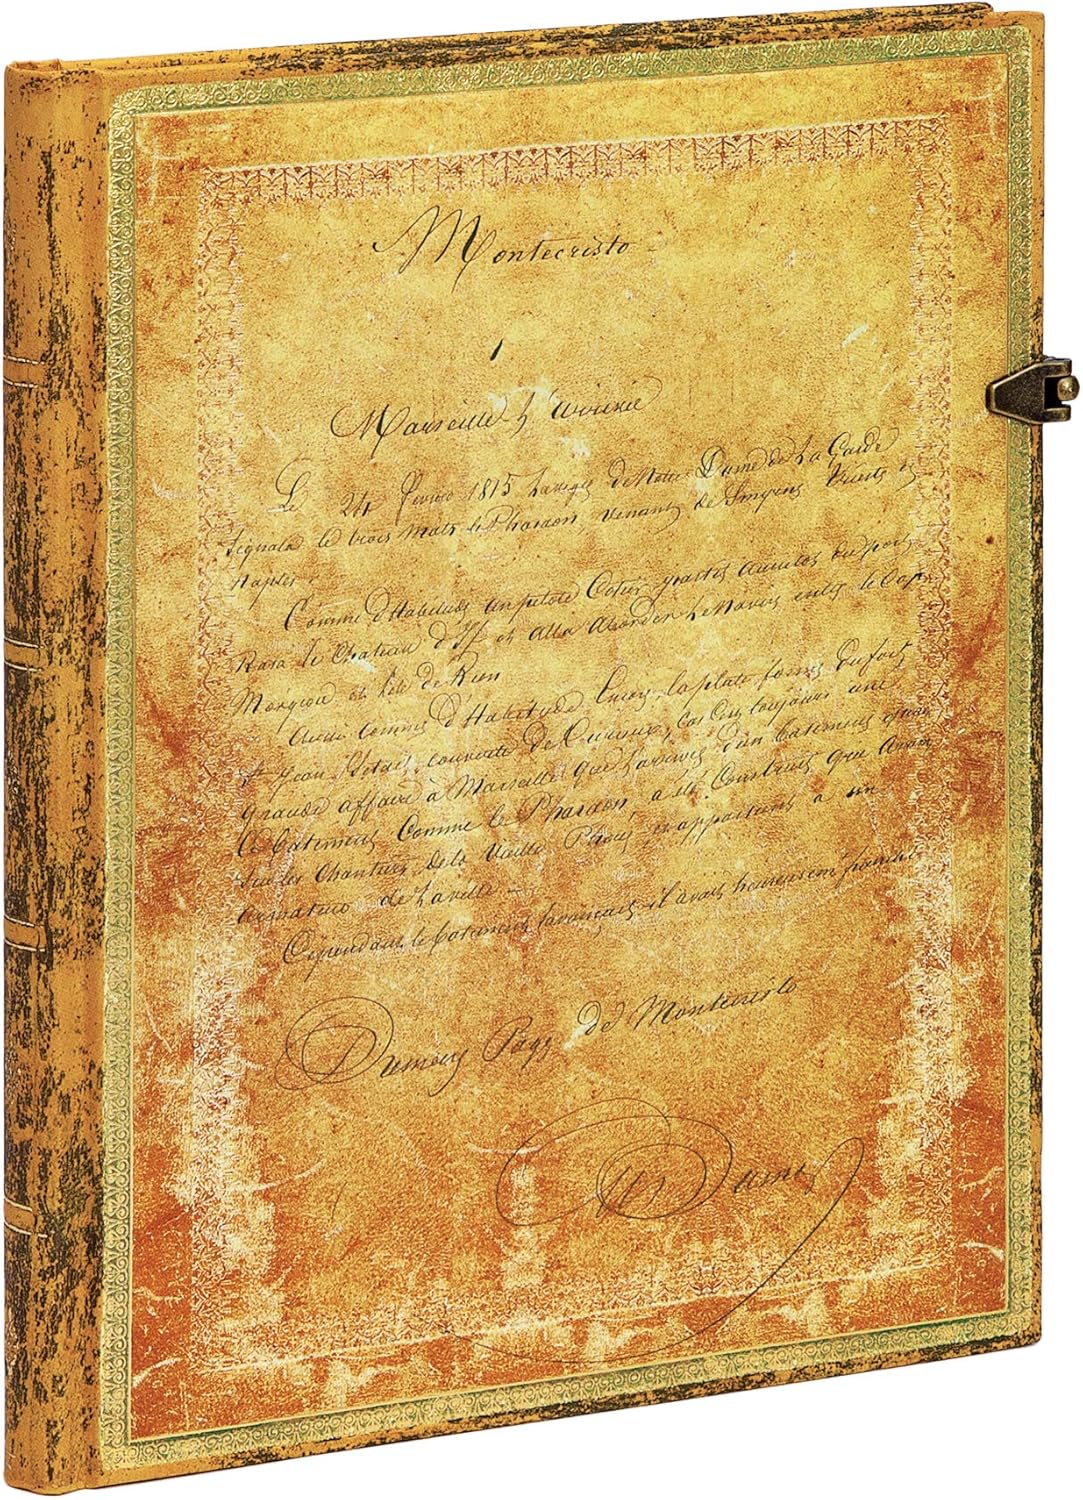 Montecristo
1
Marseille L'arrivée
Le 24 fevrier 1815 La vigie de Notre Dame de La Garde
Signala le trois mats le Pharaon, venant de Smyrne Trieste et
Naples.
Comme d'Habitude un pilote Cotier partit aussitot du port
Rasa le Chateau d'If et Alla Aborder Le Navire entre le Cap
Morgiou et L'ile de Rion
Aussi comme d'Habitude la plate forme du fort
St Jean s'etait couverte de Curieux, car c'est toujours une
grande affaire à Marseille que L'arrivée d'un batiment quand
le batiment Comme le Pharaon, a été Construit
Sur les Chantiers de la Vieille et appartient à un
armateur de La ville -
Cependant le batiment s'avançait il avait heureusement franchi
Dumas de Montecristo
A Dumas